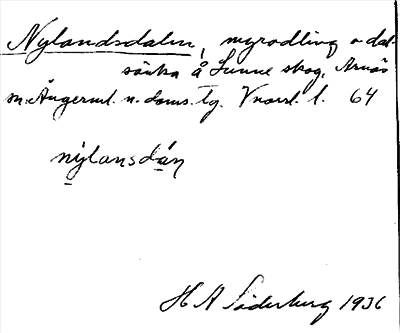 Nylandsdalen, myrodling o dal-
sänka å Sunne skog, Arnäs
sn. Ångerml. n. doms. tg. Vnorrl. l. 64
nýlansdán
H A Söderberg 1936